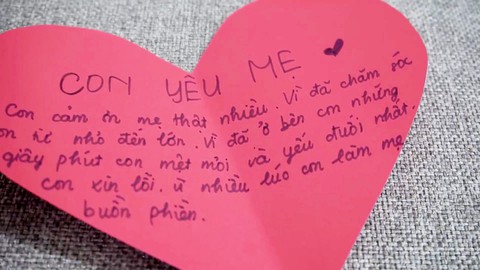 CON YÊU MẸ
Con cảm ơn mẹ thật nhiều. Vì đã chăm sóc
con từ nhỏ đến lớn. Vì đã ở bên con những
giây phút con mệt mỏi và yếu đuối nhất.
Con xin lỗi. vì nhiều lúc con làm mẹ
buồn phiền.